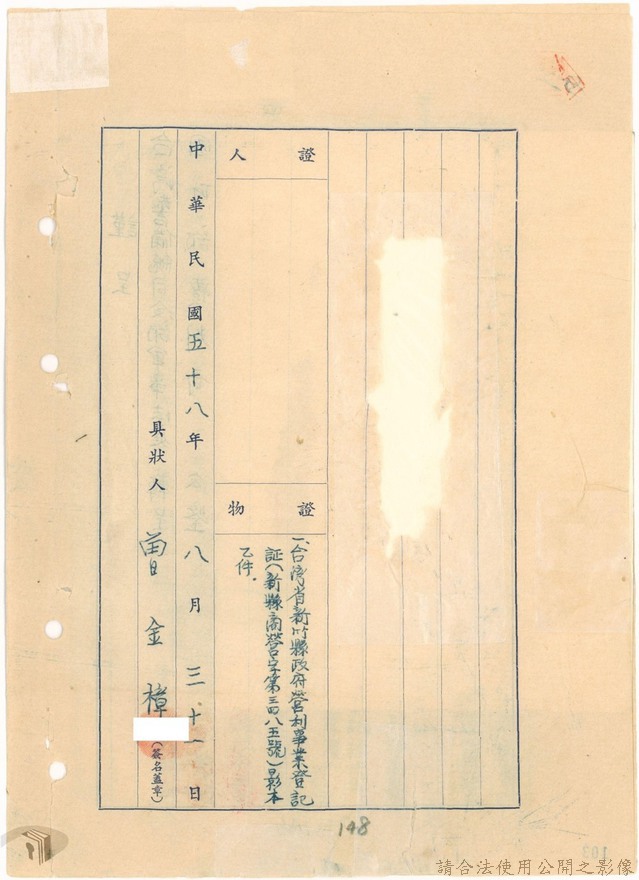 證人
證物
一、台湾省新竹縣政府營利事業登記
証(新縣商營字第三四八五號)影本
乙件.
中華民國五十八年八月三十一日
具狀人 曹金樟
(簽名蓋章)
148
103
請合法使用公開之影像